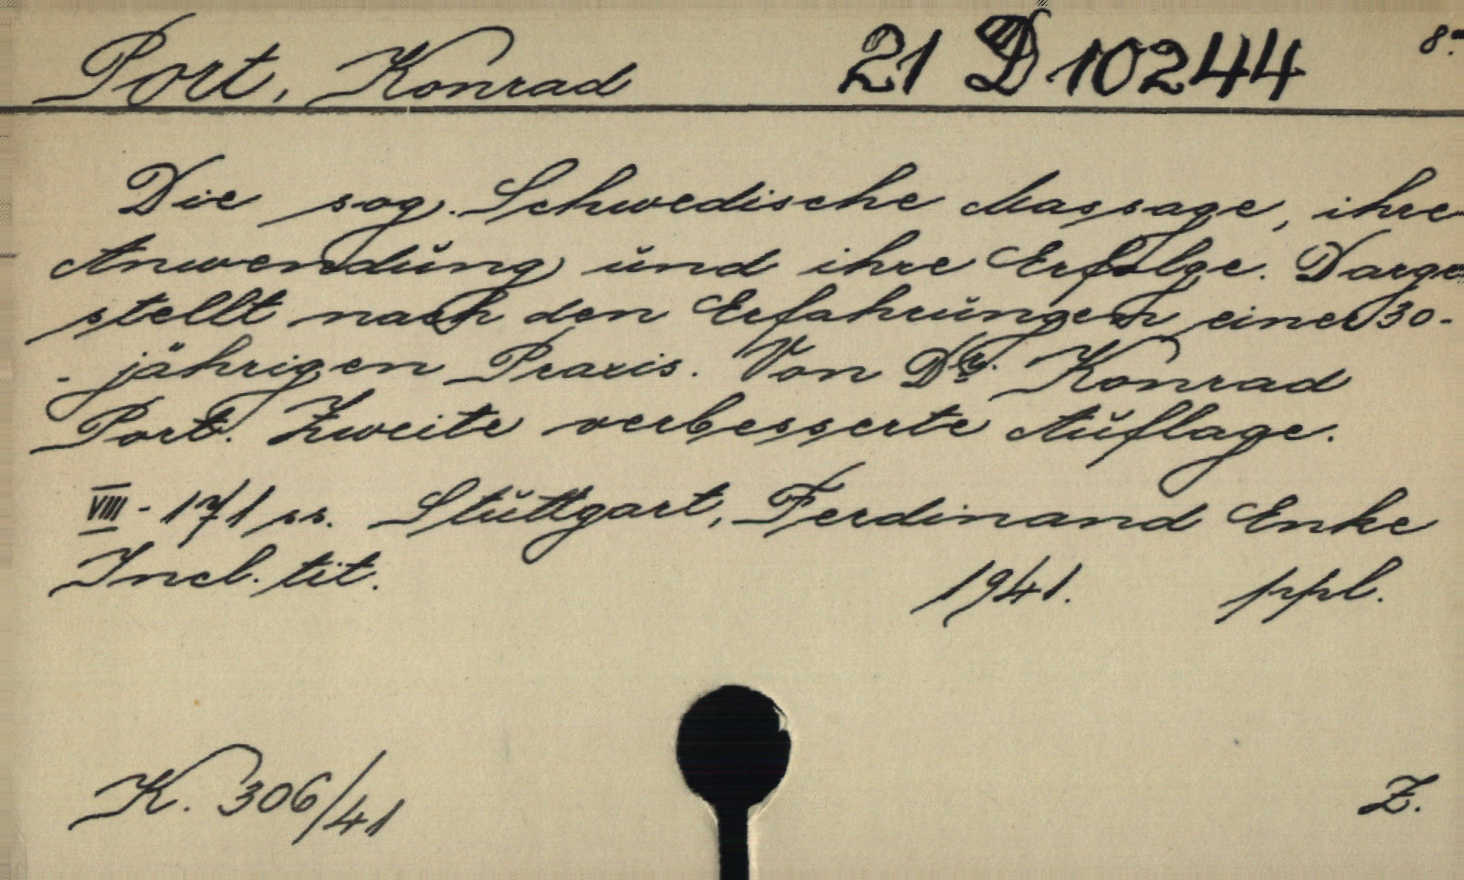 Port, Konrad 21 D 10244 8°
Die sog. Schwedische Massage, ihre
Anwendung und ihre Erfolge. Darge-
stellt nach den Erfahrungen einer 30-
-jährigen Praxis. Von Dr. Konrad
Port. Zweite verbesserte Auflage.
VIII - 171 ss. Stuttgart, Ferdinand Enke
Incl. tit. 1941. ppl.
K. 306/41 Z.